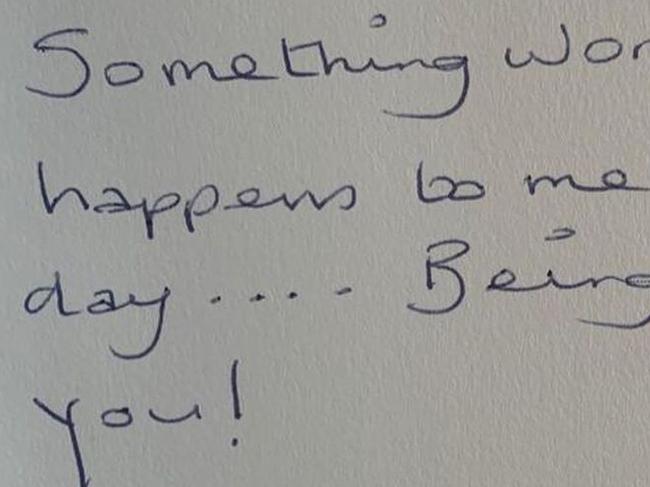 Something wor
happens to me
day .... Being
you!